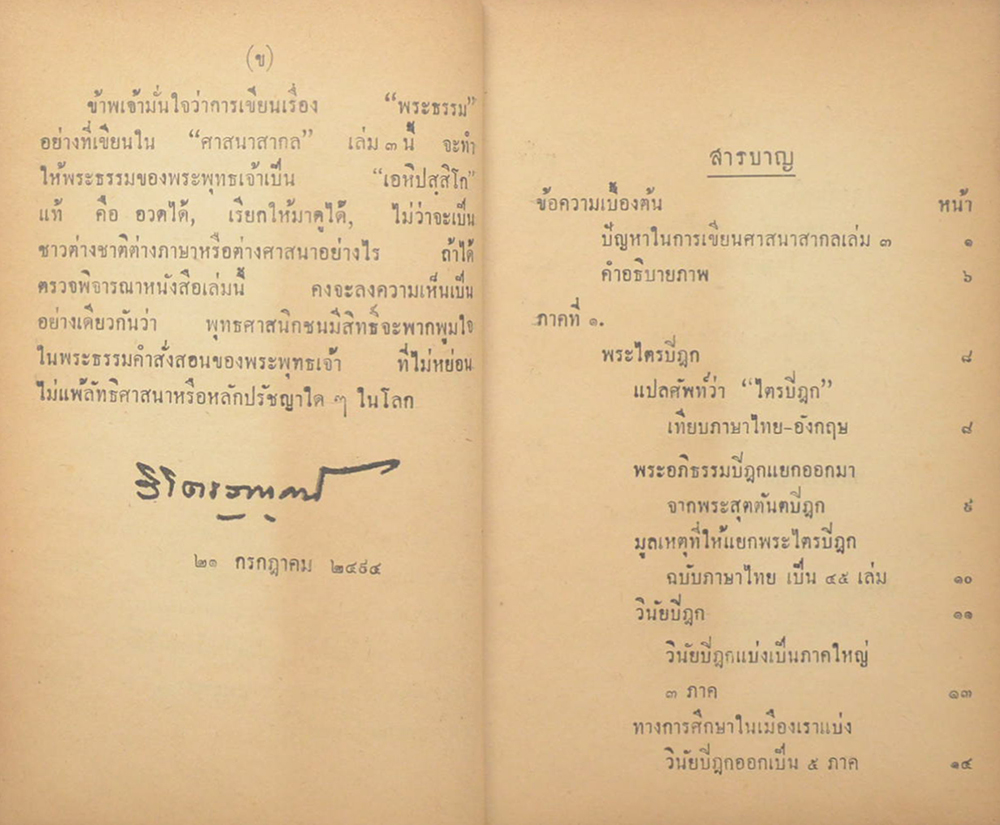 (ข)
ข้าพเจ้ามั่นใจว่าการเขียนเรื่อง "พระธรรม"
อย่างที่เขียนใน "ศาสนาสากล" เล่ม ๓ นี้ จะทำ
ให้พระธรรมของพระพุทธเจ้าเป็น "เอหิปสฺสิโก"
แท้ คือ อวดได้, เรียกให้มาดูได้, ไม่ว่าจะเป็น
ชาวต่างชาติต่างภาษาหรือต่างศาสนาอย่างไร ถ้าได้
ตรวจพิจารณาหนังสือเล่มนี้ คงจะลงความเห็นเป็น
อย่างเดียวกันว่า พุทธศาสนิกชนมีสิทธิ์จะพากพูมใจ
ในพระธรรมคำสั่งสอนของพระพุทธเจ้า ที่ไม่หย่อน
ไม่แพ้ลัทธิศาสนาหรือหลักปรัชญาใด ๆ ในโลก
๒๑ กรกฎาคม ๒๔๙๔
สารบาญ
ข้อความเบื้องต้น หน้า
ปัญหาในการเขียนศาสนาสากลเล่ม ๓ ๑
คำอธิบายภาพ ๖
ภาคที่ ๑.
พระไตรปี่ฎก ๘
แปลศัพท์ว่า "ไตรปี่ฎก"
เทียบภาษาไทย-อังกฤษ ๘
พระอภิธรรมปี่ฎกแยกออกมา
จากพระสุตตันตปี่ฎก ๙
มูลเหตุที่ให้แยกพระไตรปี่ฎก
ฉบับภาษาไทย เป็น ๔๕ เล่ม ๑๐
วินัยปี่ฎก ๑๑
วินัยปี่ฎกแบ่งเป็นภาคใหญ่
๓ ภาค ๑๓
ทางการศึกษาในเมืองเราแบ่ง
วินัยปี่ฎกออกเป็น ๕ ภาค ๑๔